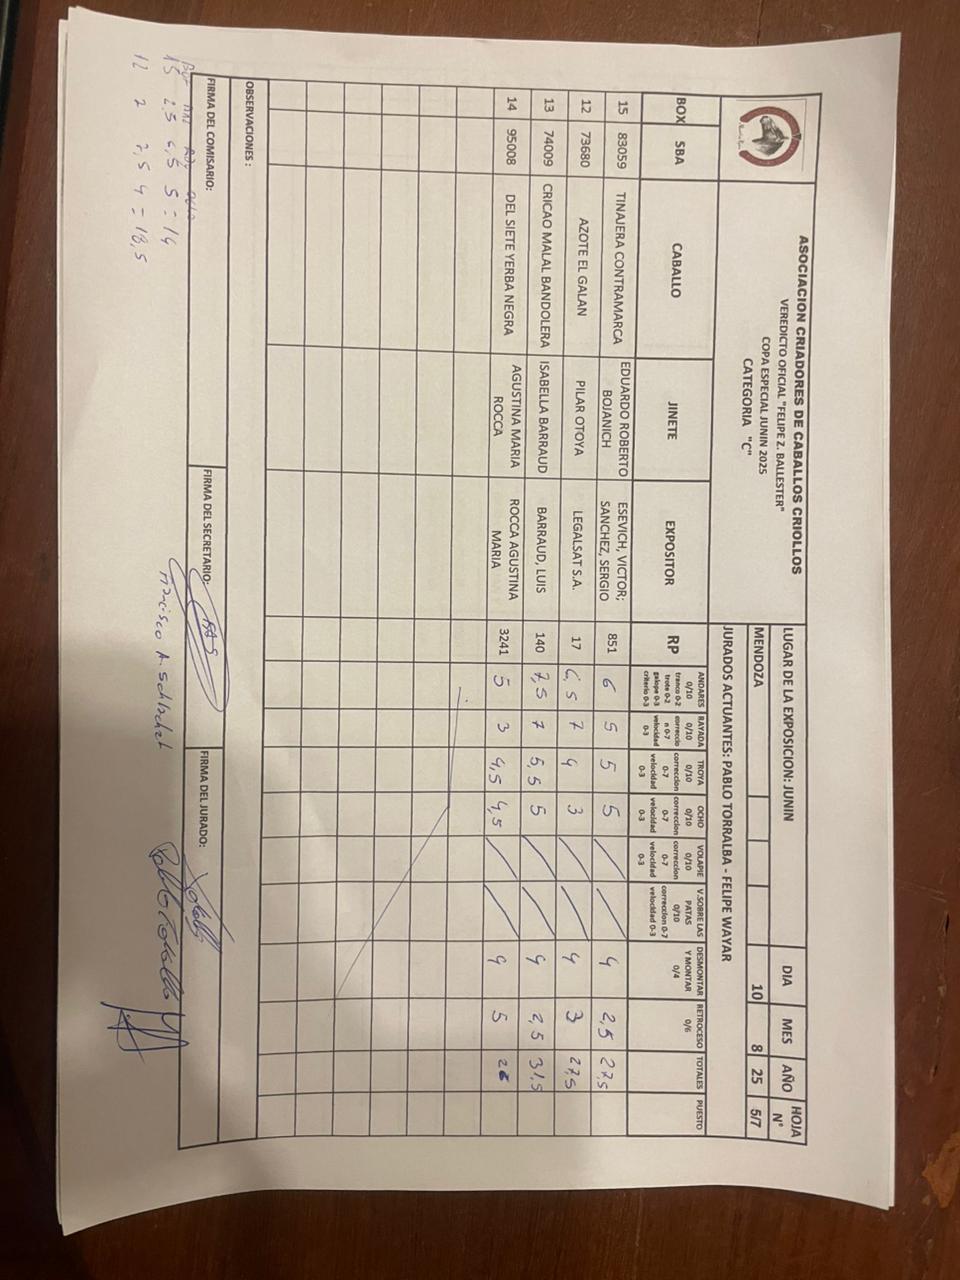 ASOCIACION CRIADORES DE CABALLOS CRIOLLOS
VEREDICTO OFICIAL "FELIPE Z. BALLESTER"
COPA ESPECIAL JUNIN 2025
CATEGORIA "C"
LUGAR DE LA EXPOSICION: JUNIN DIA MES AÑO HOJA N°
MENDOZA 10 8 25 5/7
JURADOS ACTUANTES: PABLO TORRALBA - FELIPE WAYAR
BOX SBA CABALLO JINETE EXPOSITOR RP ANDARES 0/10 tranco 0-2 trote 0-2 galope 0-3 criterio 0-3 RAYADA 0/10 correccio n 0-7 velocidad 0-3 TROYA 0/10 correccion 0-7 velocidad 0-3 OCHO 0/10 correccion 0-7 velocidad 0-3 VOLAPIE 0/10 correccion 0-7 velocidad 0-3 V.SOBRE LAS PATAS 0/10 correccion 0-7 velocidad 0-3 DESMONTAR Y MONTAR 0/4 RETROCESO 0/6 TOTALES PUESTO
15 83059 TINAJERA CONTRAMARCA EDUARDO ROBERTO BOJANICH ESEVICH, VICTOR; SANCHEZ, SERGIO 851 6 5 5 5 4 2,5 27,5
12 73680 AZOTE EL GALAN PILAR OTOYA LEGALSAT S.A. 17 6,5 7 4 3 4 3 27,5
13 74009 CRICAO MALAL BANDOLERA ISABELLA BARRAUD BARRAUD, LUIS 140 7,5 7 5,5 5 4 2,5 31,5
14 95008 DEL SIETE YERBA NEGRA AGUSTINA MARIA ROCCA ROCCA AGUSTINA MARIA 3241 5 3 4,5 4,5 4 5 26
OBSERVACIONES :
FIRMA DEL COMISARIO: FIRMA DEL SECRETARIO: FIRMA DEL JURADO:
15 2.5 6,5 5 = 14
12 2 7,5 4 = 18,5